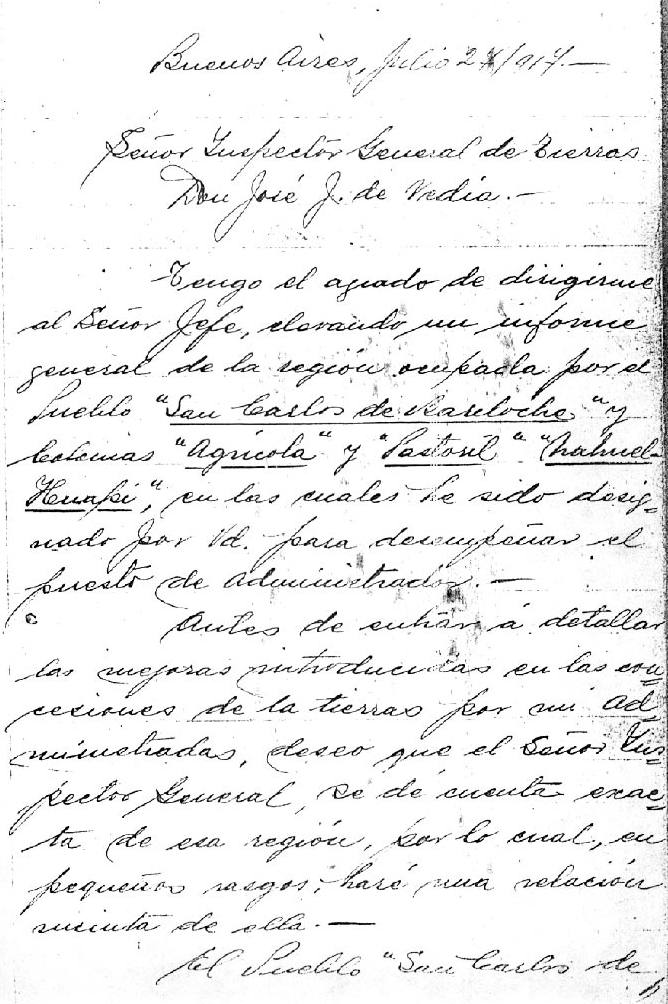 Buenos Aires, Julio 24/914.—
Señor Inspector General de Tierras
Don José J. de Vedia.—
Tengo el agrado de dirigirme
al Señor Jefe, elevando un informe
general de la región ocupada por el
Pueblo "San Carlos de Bariloche" y
Colonias "Agrícola" y "Pastoril" "Nahuel-
Huapi", en las cuales he sido desig-
nado por Vd. para desempeñar el
puesto de administrador.—
Antes de entrar á detallar
las mejoras introducidas en las con-
cesiones de la tierras por mi ad-
ministradas, deseo que el Señor Ins-
pector General, se dé cuenta exac-
ta de esa región, por lo cual, en
pequeños rasgos, haré una relación
sucinta de ella.—
El Pueblo "San Carlos de